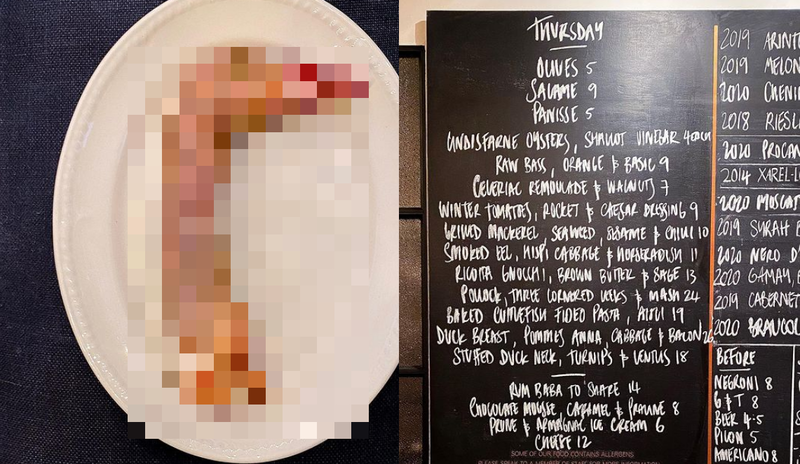 THURSDAY
OLIVES 5
SALAME 9
PANISSE 5
LINDISFARNE OYSTERS, SHALLOT VINEGAR 4 EACH
RAW BASS, ORANGE & BASIL 9
CELERIAC REMOULADE & WALNUTS 7
WINTER TOMATOES, ROCKET & CAESAR DRESSING 9
GRILLED MACKEREL, SEAWEED, SESAME & CHILLI 10
SMOKED EEL, HISPI CABBAGE & HORSERADISH 11
RICOTTA GNOCCHI, BROWN BUTTER & SAGE 13
POLLOCK, THREE CORNERED LEEKS & MASH 24
BAKED CUTTLEFISH FIDEO PASTA, AIOLI 19
DUCK BREAST, POMMES ANNA, CABBAGE & BACON 26
STUFFED DUCK NECK, TURNIPS & LENTILS 18
RUM BABA TO SHARE 14
CHOCOLATE MOUSSE, CARAMEL & PRALINE 8
PRUNE & ARMAGNAC ICE CREAM 6
CHEESE 12
SOME OF OUR FOOD CONTAINS ALLERGENS
2019 ARINT
2019 MELON
2020 CHENIN
2018 RIESL
2020 PROCAN
2014 XAREL-L
2020 MOSCAT
2019 SYRAH
2020 NERO D'
2020 GAMAY,
2019 CABERNET
2020 BRAUCOL
BEFORE
NEGRONI 8
G & T 8
BEER 4.5
PICON 5
AMERICANO 8